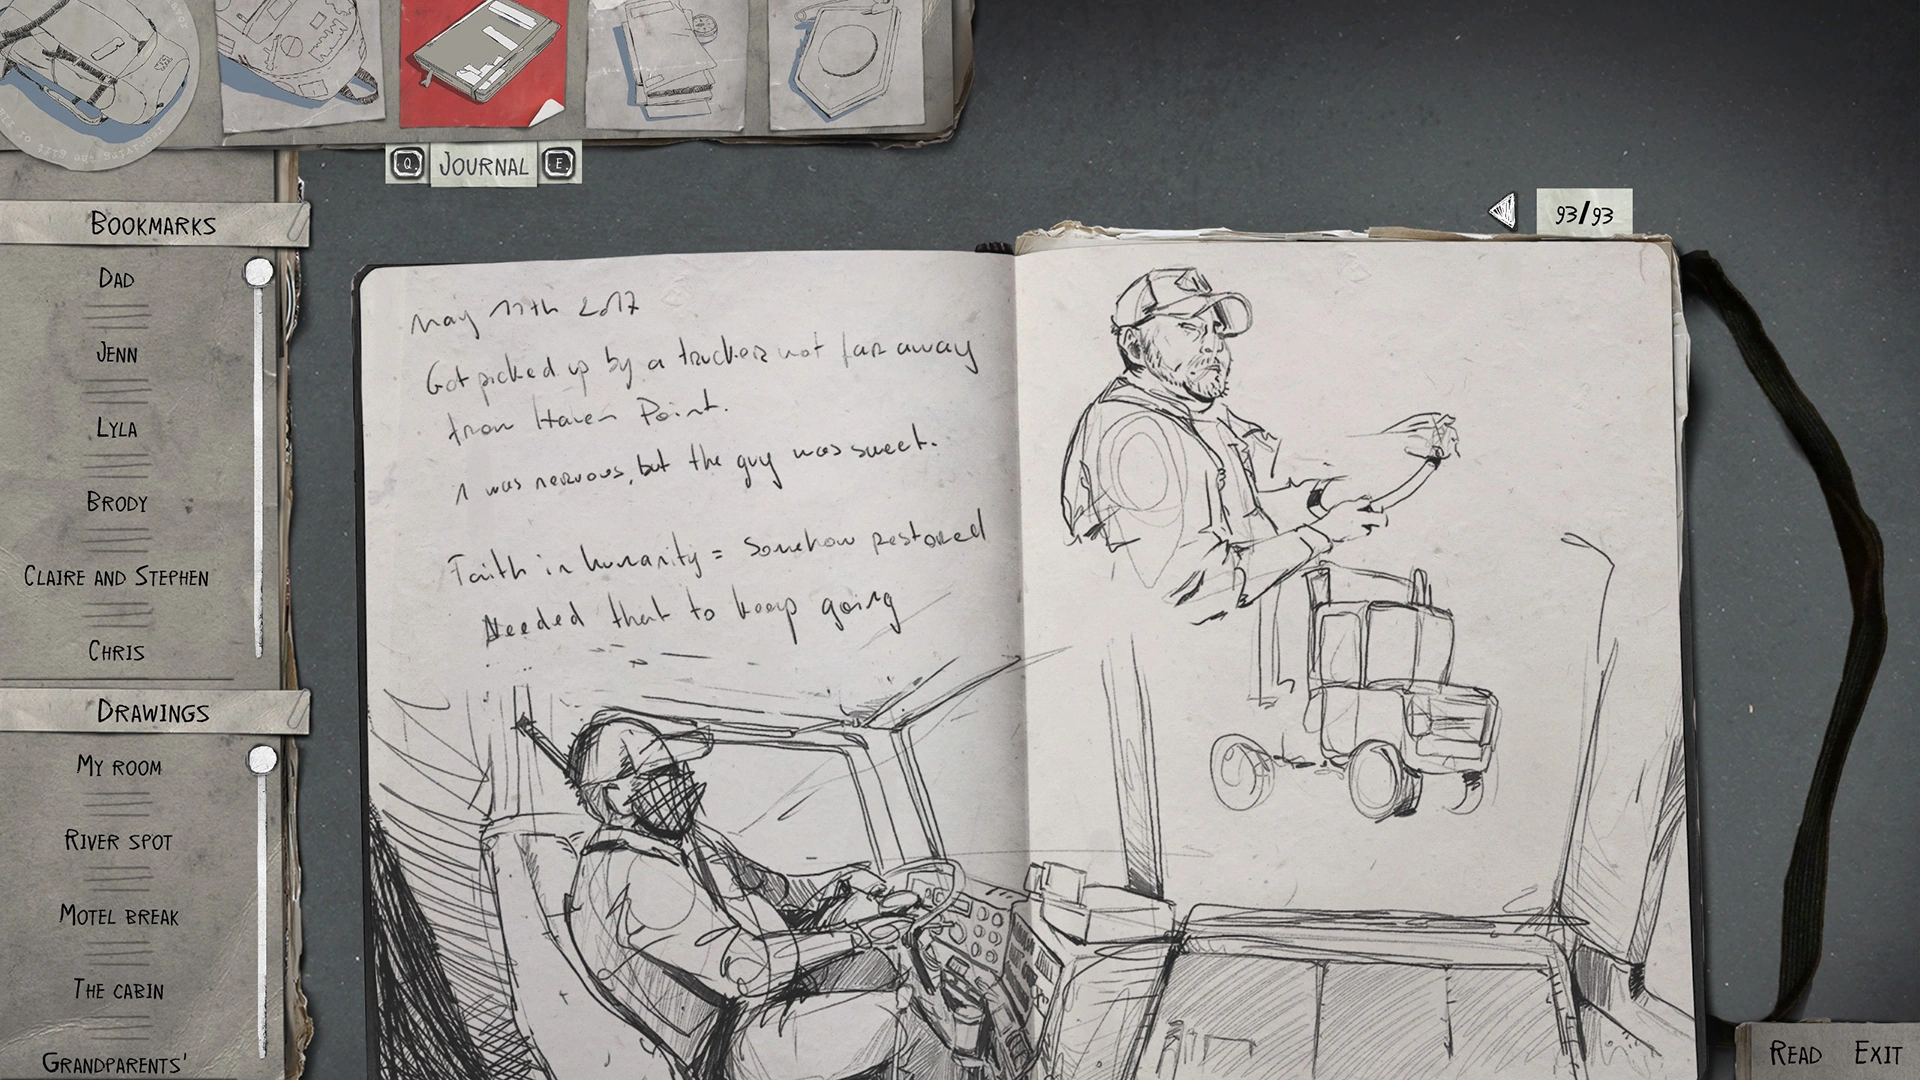 Q
JOURNAL
E
93/93
BOOKMARKS
DAD
JENN
LYLA
BRODY
CLAIRE AND STEPHEN
CHRIS
DRAWINGS
MY ROOM
RIVER SPOT
MOTEL BREAK
THE CABIN
GRANDPARENTS'
May 11th 2017
Got picked up by a trucker not far away
from Haven Point.
I was nervous, but the guy was sweet.
Faith in humanity = Somehow restored
Needed that to keep going
READ EXIT